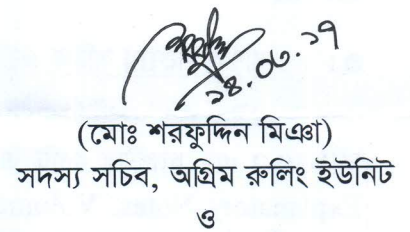 ২৪.০৩.১৭
(মোঃ শরফুদ্দিন মিঞা)
সদস্য সচিব, অগ্রিম রুলিং ইউনিট
ও